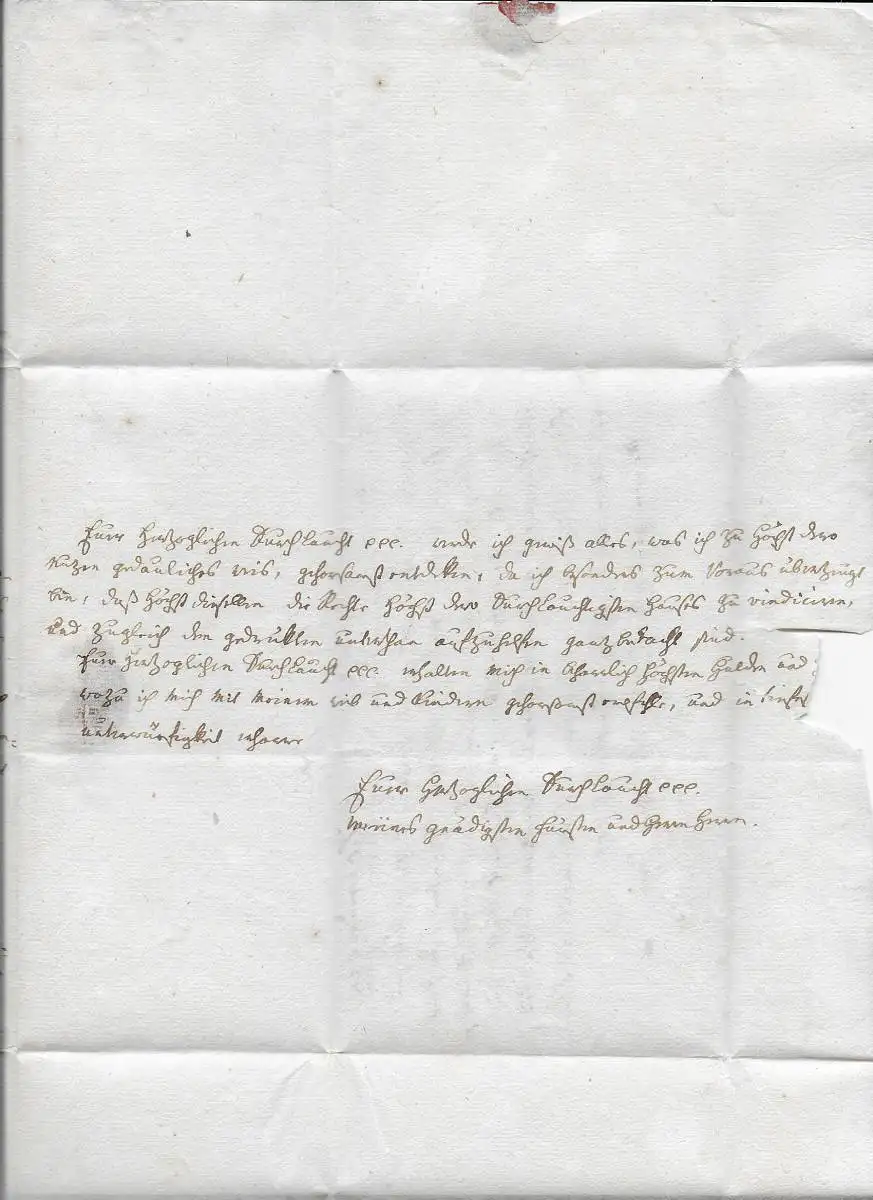 Euer Herzoglichen Durchlaucht ppp. werde ich gewiß alles, was ich zu Höchst dero
Nuzen gedeuliches weis, gehorsamst entdeken, da ich besonders zum Voraus überzeugt
bin, daß Höchst dieselben die Rechte Höchst dero Durchlauchtigsten Hauses zu vindiciren,
und zugleich dem gedrukten unterthan aufzuhelfen ganz bedacht sind.
Euer Herzoglichen Durchlaucht ppp. erhalten mich in Höchsten Hulden und
wozu ich mich mit meinem weib und Kindern gehorsamst empfehle, und in tiefst
unterwürfigkeit erharre
Euer Herzoglichen Durchlaucht ppp.
meines gnädigsten Fürsten und Herrn Herrn.